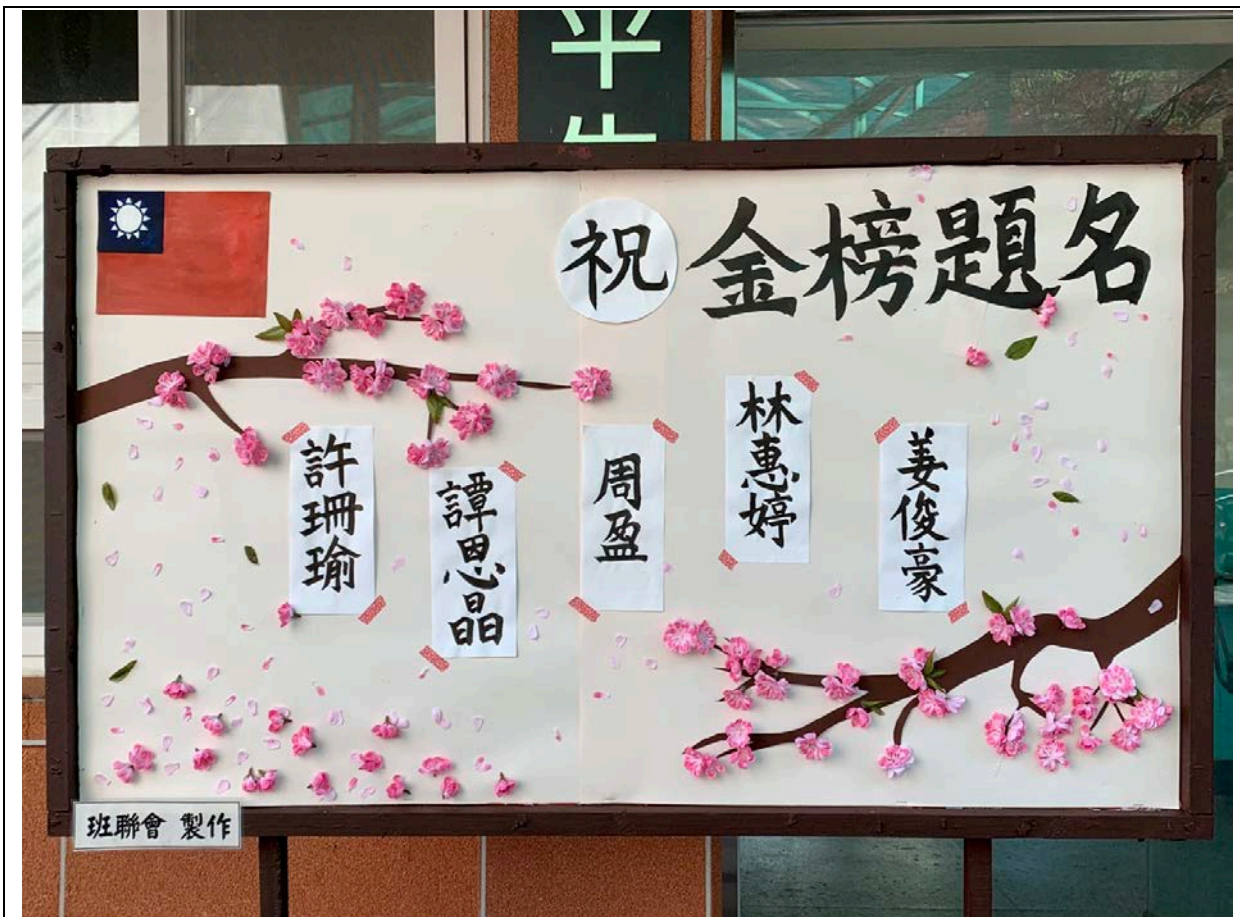 平
祝 金榜題名
許珊瑜
譚思晶
周盈
林惠婷
姜俊豪
班聯會 製作